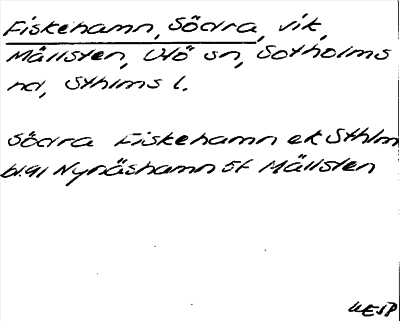 Fiskehamn, Södra, vik,
Mällsten, Utö sn, Sotholms
hd, Sthlms l.
Södra Fiskehamn ek Sthlm
bl. 91 Nynäshamn 5f Mällsten